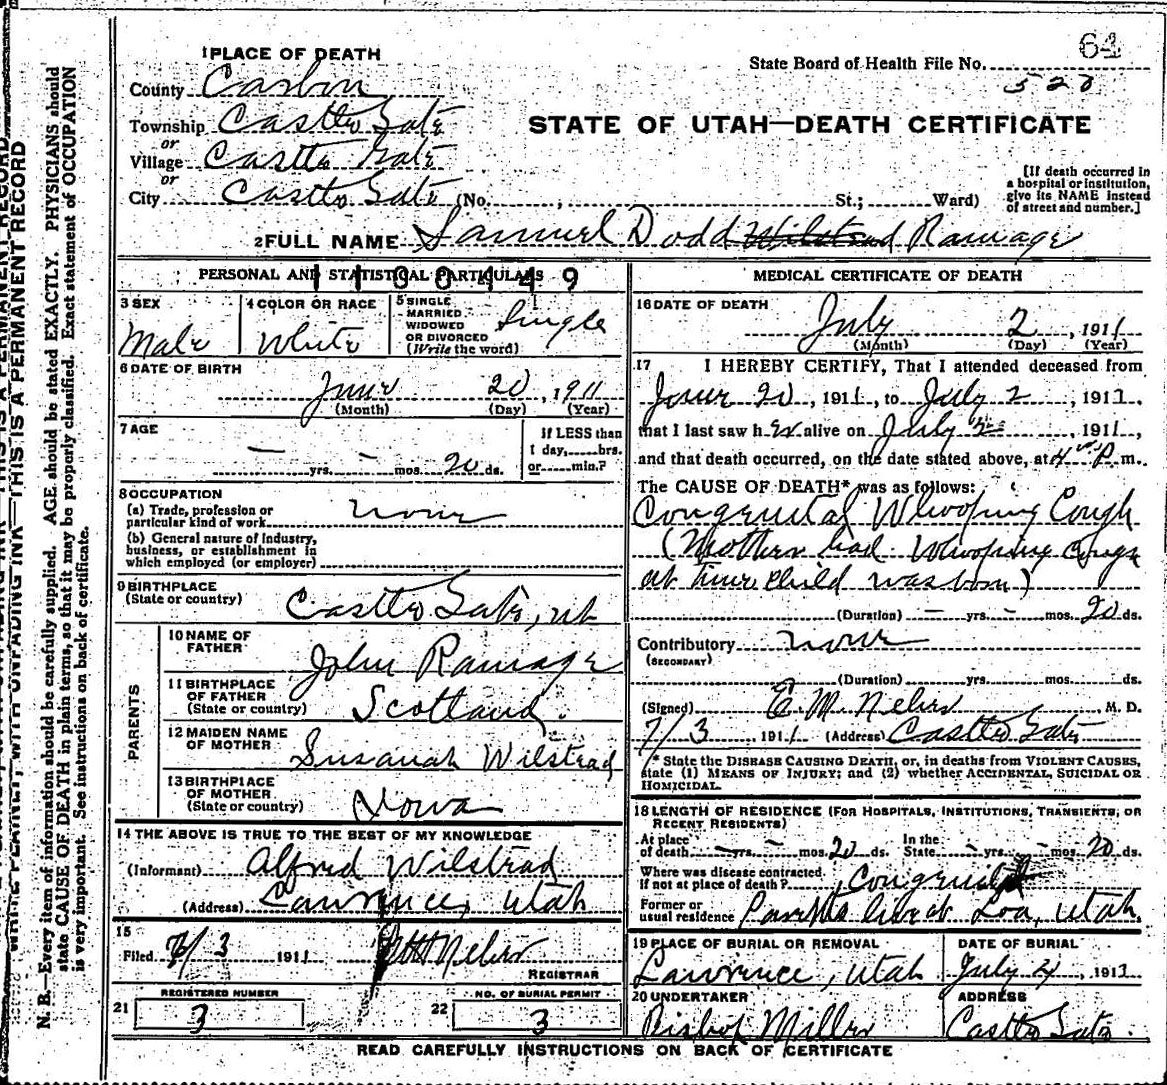 64
1 PLACE OF DEATH
State Board of Health File No.
County Carbon
528
Township Castle Gate
or
Village Castle Gate
or
City Castle Gate (No. , St.; Ward)
STATE OF UTAH—DEATH CERTIFICATE
[If death occurred in a hospital or institution, give its NAME instead of street and number.]
2 FULL NAME Samuel Dodd Wilstead Ramage
PERSONAL AND STATISTICAL PARTICULARS
1100449
3 SEX
Male
4 COLOR OR RACE
White
5 SINGLE MARRIED WIDOWED OR DIVORCED (Write the word)
Single
6 DATE OF BIRTH
June 20, 1911
(Month) (Day) (Year)
7 AGE
— yrs. – mos. 20 ds.
If LESS than 1 day, hrs. or min.?
8 OCCUPATION
(a) Trade, profession or particular kind of work none
(b) General nature of Industry, business, or establishment in which employed (or employer)
9 BIRTHPLACE
(State or country) Castle Gate, ut
PARENTS
10 NAME OF FATHER John Ramage
11 BIRTHPLACE OF FATHER (State or country) Scotland.
12 MAIDEN NAME OF MOTHER Susanah Wilstead
13 BIRTHPLACE OF MOTHER (State or country) Iowa
14 THE ABOVE IS TRUE TO THE BEST OF MY KNOWLEDGE
(Informant) Alfred Wilstead
(Address) Lawrence, Utah
15
Filed 7/3 1911 Neher
REGISTRAR
REGISTERED NUMBER
21 3
NO. OF BURIAL PERMIT
22 3
MEDICAL CERTIFICATE OF DEATH
16 DATE OF DEATH
July 2, 1911
(Month) (Day) (Year)
17 I HEREBY CERTIFY, That I attended deceased from
June 20, 1911, to July 2, 1911,
that I last saw h er alive on July 2, 1911,
and that death occurred, on the date stated above, at 4 P m.
The CAUSE OF DEATH* was as follows:
Congenital Whooping Cough
(Mother had Whooping Cough
at time child was born)
(Duration) – yrs. – mos. 20 ds.
Contributory none
(SECONDARY)
(Duration) yrs. mos. ds.
(Signed) E. M. Neher M. D.
7/3, 1911 (Address) Castle Gate
* State the DISEASE CAUSING DEATH, or, in deaths from VIOLENT CAUSES, state (1) MEANS OF INJURY; and (2) whether ACCIDENTAL, SUICIDAL OR HOMICIDAL.
18 LENGTH OF RESIDENCE (FOR HOSPITALS, INSTITUTIONS, TRANSIENTS, OR RECENT RESIDENTS)
At place of death – yrs. – mos. 20 ds. In the State – yrs. – mos. 20 ds.
Where was disease contracted if not at place of death? Congenital
Former or usual residence Parents live at Loa, Utah.
19 PLACE OF BURIAL OR REMOVAL
Lawrence, Utah
DATE OF BURIAL
July 4, 1911
20 UNDERTAKER
Bishop Miller
ADDRESS
Castle Gate.
READ CAREFULLY INSTRUCTIONS ON BACK OF CERTIFICATE
WRITE PLAINLY, WITH UNFADING INK—THIS IS A PERMANENT RECORD
N. B.—Every item of information should be carefully supplied. AGE should be stated EXACTLY. PHYSICIANS should
state CAUSE OF DEATH in plain terms, so that it may be properly classified. Exact statement of OCCUPATION
is very important. See instructions on back of certificate.